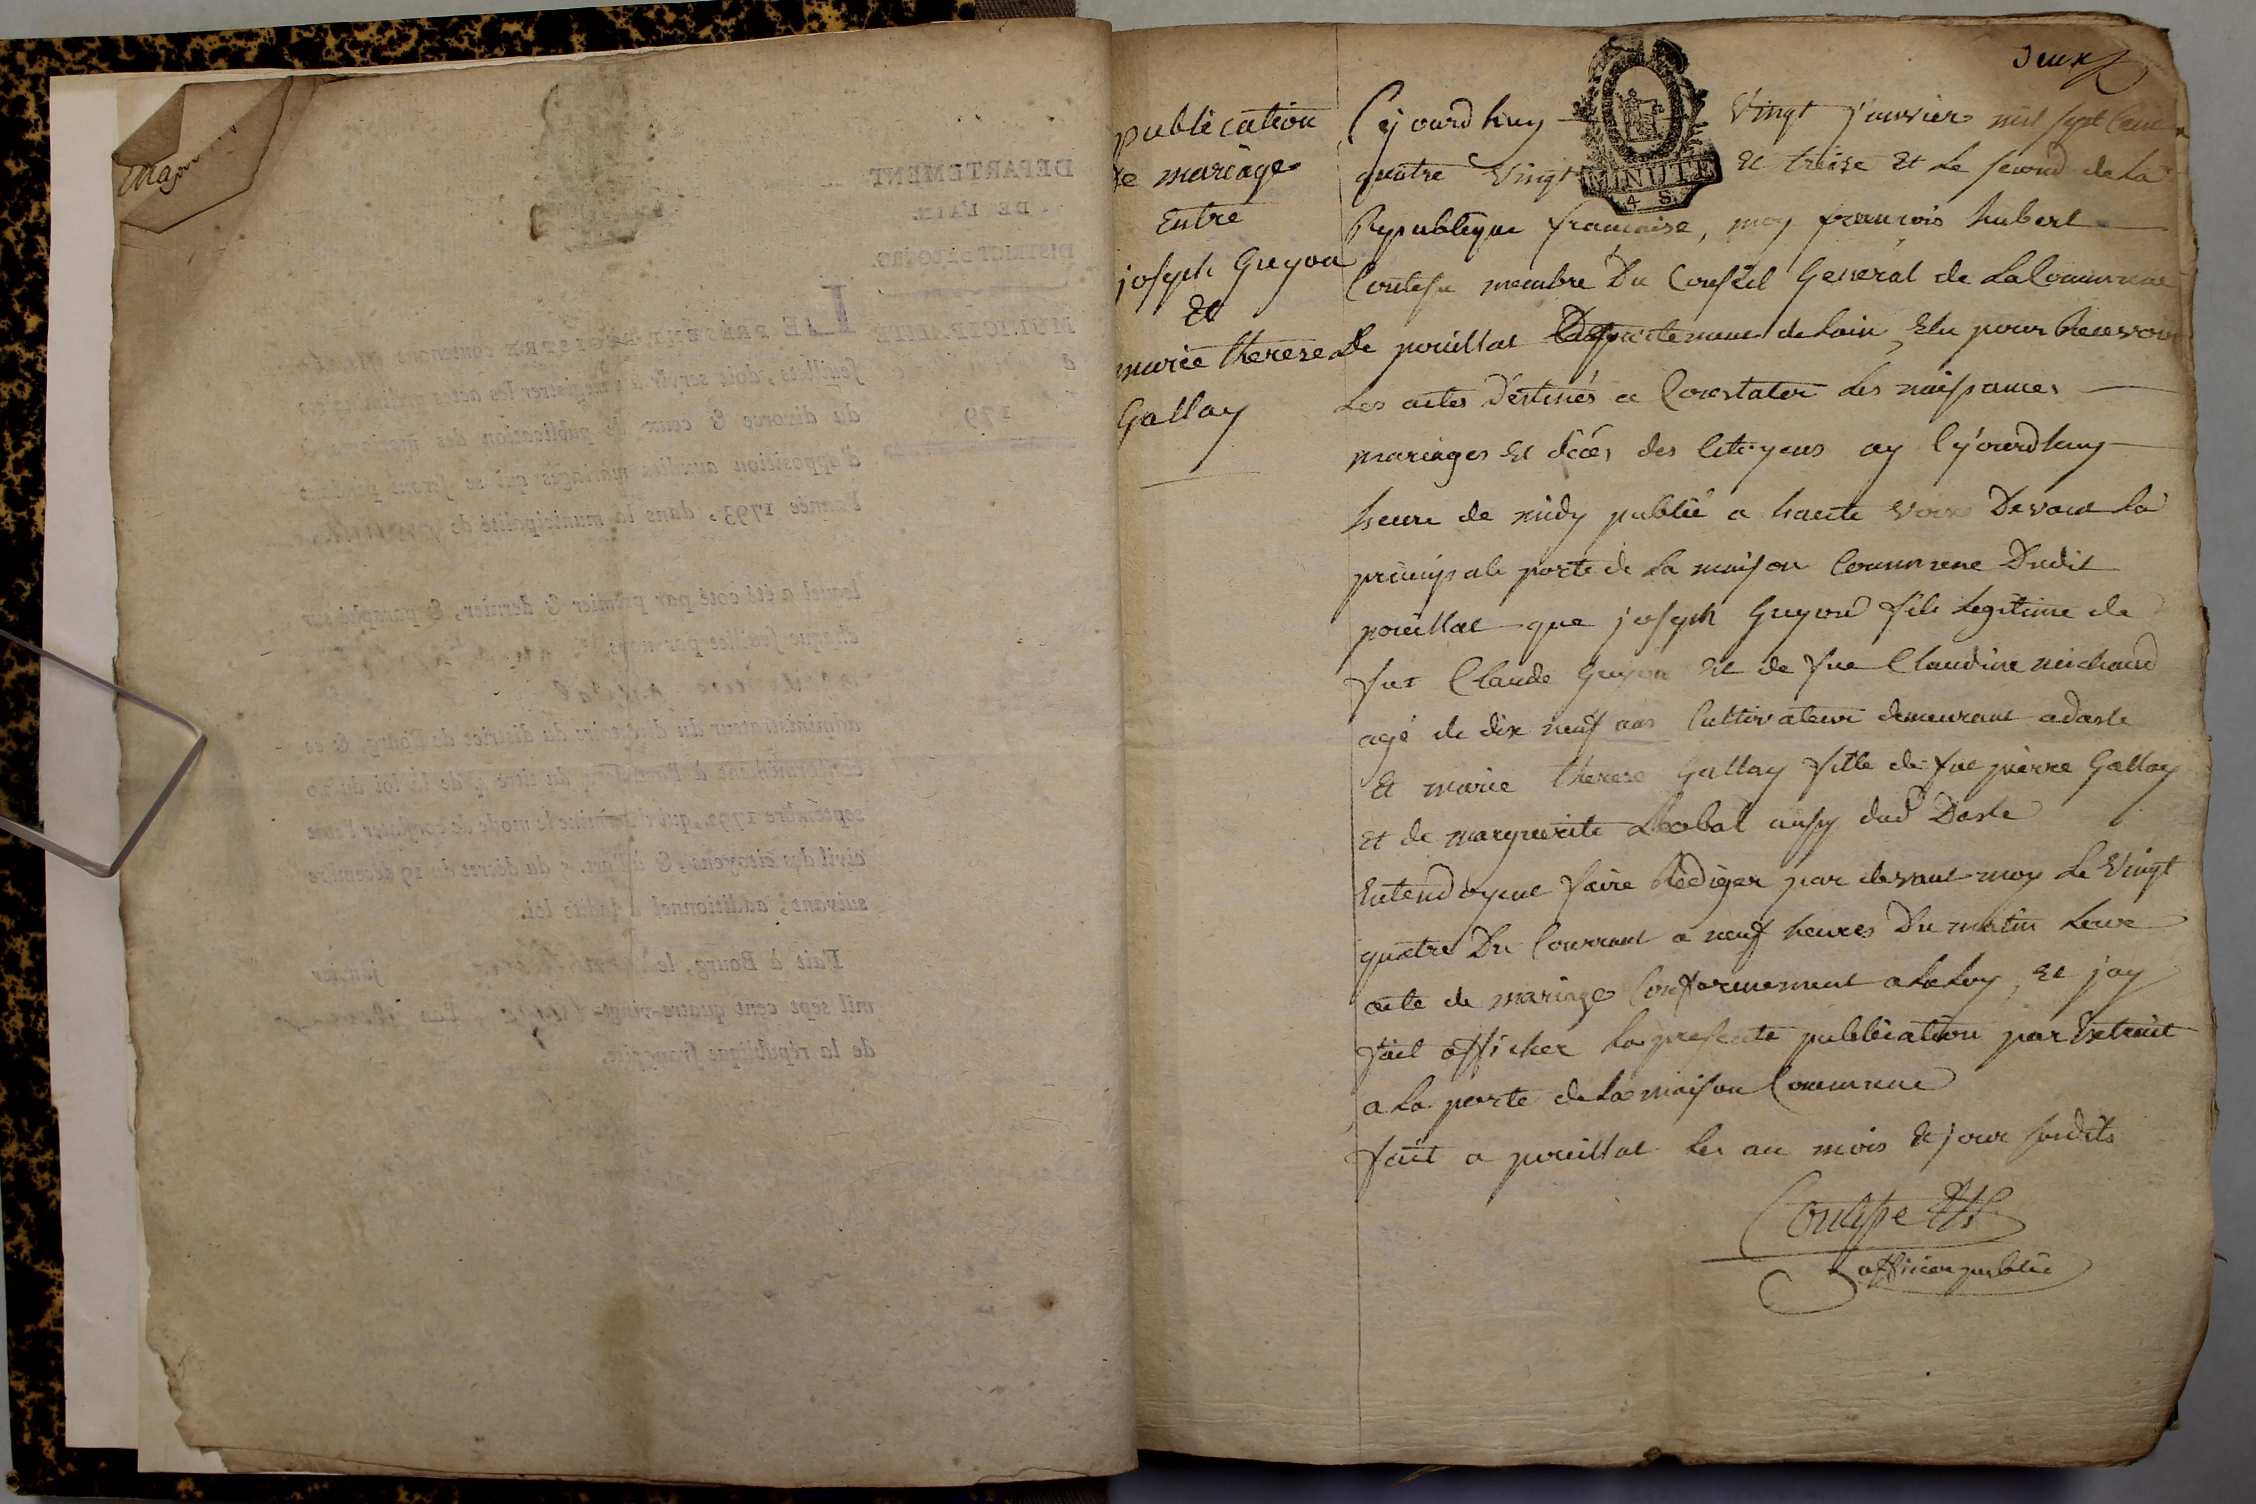 deux
publication
de mariage
Entre
joseph Guyon
Et
marie therese
Gallay
Cejourdhuy vingt janvier mil sept cent
quatre vingt et treize et le second de la
Republique francaise, moy francois hubert
membre Du Conseil General de La Commune
De pouillat Departement de lain, Elu pour Recevoir
Les actes Déstinés a Constater Les naissances
mariages et décés des Citoyens ay Cejourdhuy
heure de midy publié a haute voix Devant la
principale porte de La maison Commune Dudit
pouillat que joseph Guyon fils Legitime de
fut Claude Guyon et de fue Claudine michaud
agé de dix neuf ans Cultivateur demeurant
Et marie therese Gallay fille de fue pierre Gallay
Et de marguerite aussy dud
Entendoyent faire Rediger par devant moy Le vingt
quatre Du Courrant a neuf heures Du matin Leur
acte de mariage Conformement a La Loy, et jay
fait afficher La presente publication par Extrait
a La porte de La maison Commune
fait a pouillat Les an mois et jour susdits
officier public
MINUTE
4 S.
DEPARTEMENT
DE L'AIN.
DISTRICT DE BOURG.
MUNICIPALITÉ
179
LE PRÉSENT REGISTRE contenant
feuillets, doit servir à enregistrer les actes
du divorce & ceux de publication des
d'opposition auxdits mariages qui se feront pendant
l'année 1793, dans la municipalité de
lequel a été coté par premier & dernier, & paraphé sur
chaque feuillet par nous
administrateur du directoire du district de Bourg, & ce
conformément à du titre 2 de la loi du 20
septembre 1792, qui détermine le mode de constater l'état
civil des citoyens, & à l'art. du décret du 19 décembre
suivant, additionnel à ladite loi.
Fait à Bourg, le janvier
mil sept cent quatre-vingt-treize
de la république françoise.